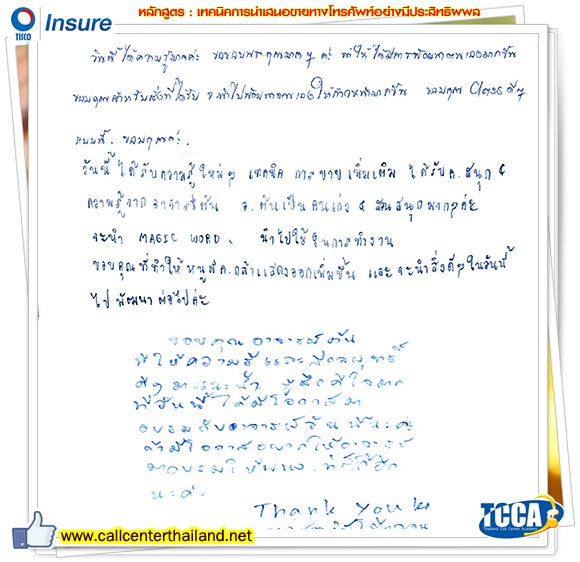 หลักสูตร : เทคนิคการนำเสนอขายทางโทรศัพท์อย่างมีประสิทธิพพล
TISCO
Insure
วันนี้ได้ความรู้มากค่ะ ขอขอบพระคุณมาก ๆ ค่ะ ทำให้ได้มีการพัฒนาตนเองมากขึ้น
ขอบคุณสำหรับสิ่งที่ได้รับ จะนำไปพัฒนาตนเองให้ก้าวหน้ามากขึ้น ขอบคุณ Class ดีๆ
แบบนี้. ขอบคุณค่ะ.
วันนี้ ได้รับความรู้ใหม่ๆ เทคนิค การขายเพิ่มเติม ได้รับ ค. สนุก &
ความรู้จากอาจารย์ต้น อ. ต้นเป็นคนเก่ง & สนุกมากค่ะ
จะนำ MAGIC WORD. นำไปใช้ในการทำงาน
ขอบคุณที่ทำให้หนูมี ค. กล้าแสดงออกเพิ่มขึ้น และ จะนำสิ่งดีๆในวันนี้
ไปพัฒนาต่อไปค่ะ
ขอบคุณอาจารย์ต้น
ที่ให้ความรู้และ
ดีๆ รู้สึกดีใจมาก
ที่วันนี้ได้มีโอกาสมา
อบรมกับอาจารย์ต้น นะค่ะ
ถ้ามีโอกาสอยากให้อาจารย์
มาอบรมให้ อีก
นะค่ะ.
Thank you
www.callcenterthailand.net
TCCA
Thailand Call Center Academy